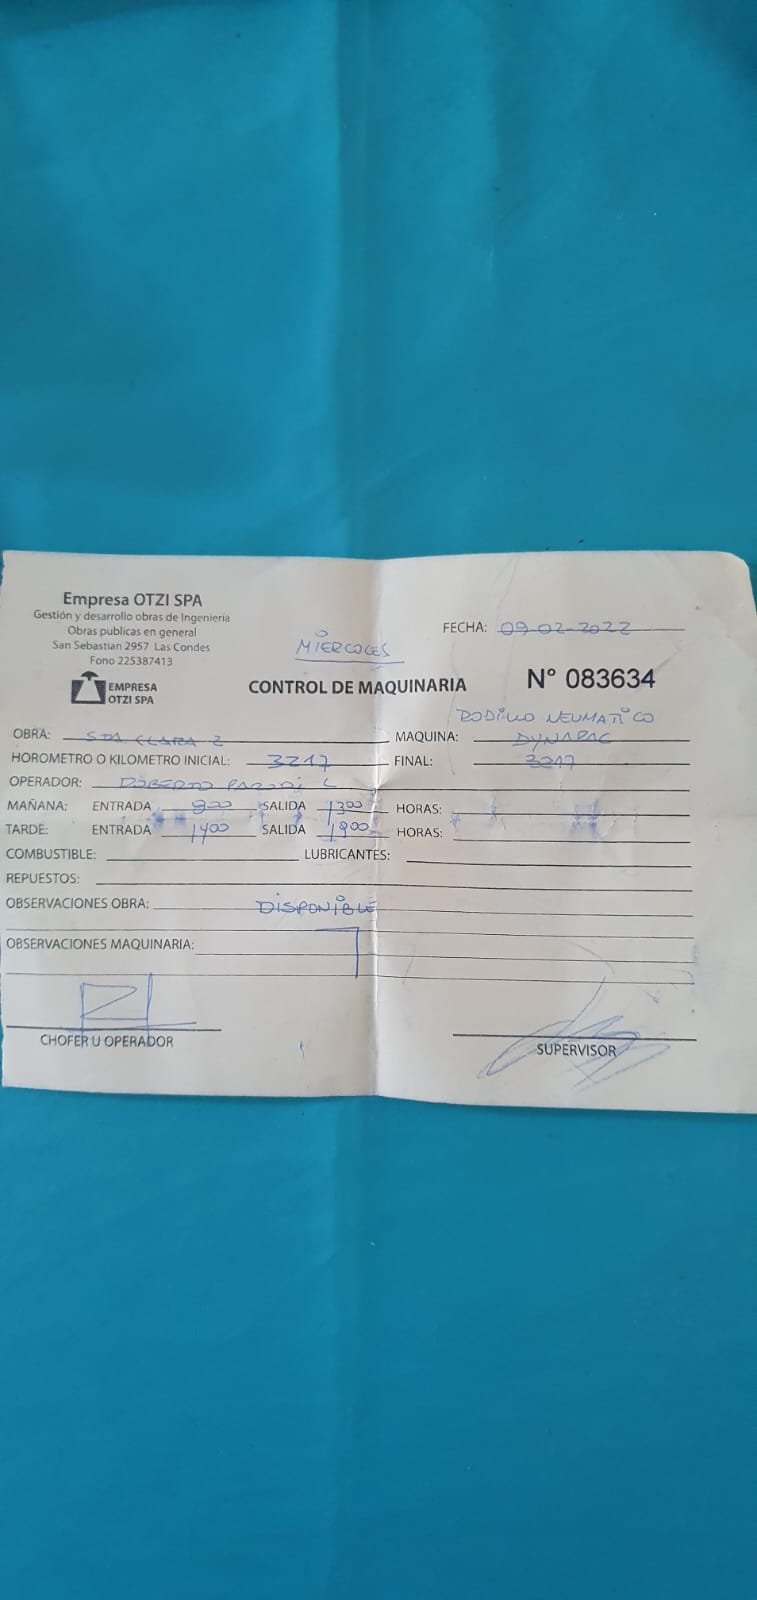 Empresa OTZI SPA
Gestión y desarrollo obras de Ingenieria
Obras publicas en general
San Sebastian 2957 Las Condes
Fono 225387413
EMPRESA
OTZI SPA
MIERCOLES
FECHA: 09-02-2022
CONTROL DE MAQUINARIA
N° 083634
RODILLO NEUMATICO
OBRA: STA CLARA 2 MAQUINA: DYNAPAC
HOROMETRO O KILOMETRO INICIAL: 3217 FINAL: 3217
OPERADOR: ROBERTO L
MAÑANA: ENTRADA 800 SALIDA 1300 HORAS:
TARDE: ENTRADA 1400 SALIDA 1900 HORAS:
COMBUSTIBLE: LUBRICANTES:
REPUESTOS:
OBSERVACIONES OBRA: DISPONIBLE
OBSERVACIONES MAQUINARIA:
CHOFER U OPERADOR
SUPERVISOR